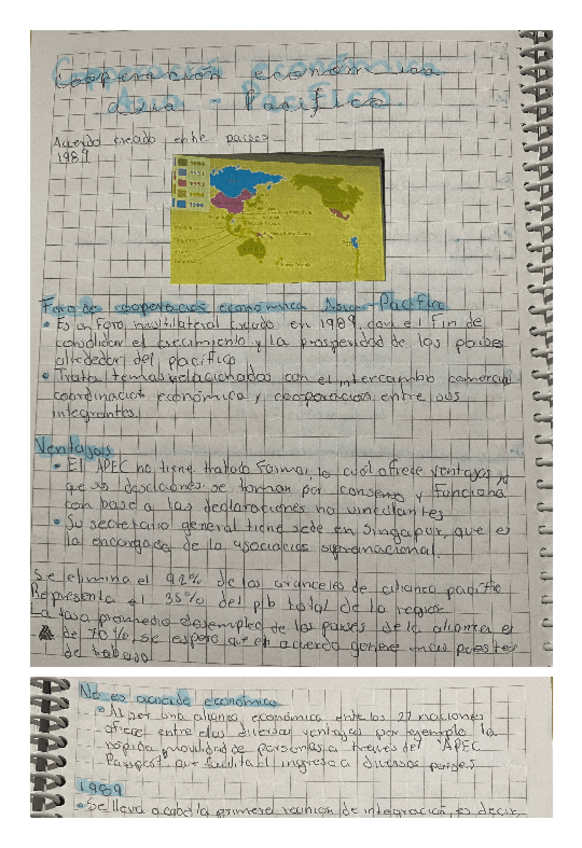 Cooperación económica
Asia - Pacífico
Acuerdo creado entre paises
1989
1989
1991
1993
1998
Perú
Foro de cooperacion económica Asia-Pacífico
• Es un Foro multilateral creado en 1989, con el Fin de
consolidar el crecimiento y la prosperidad de los paises
alrededor del pacífico
• Trata temas relacionados con el intercambio comercial
coordinación económica y cooperacion entre sus
integrantes.
Ventajas
• El APEC no tiene tratado formal, lo cual ofrece ventajas ya
que as desciones se toman por consenso y funciona
con base a las declaraciones no vinculantes
• Su secretario general tiene sede en Singapur, que es
la encargada de la asociacion supranacional.
Se elimina el 92% de los aranceles de alianza pacífic
Representa el 35% del pib total de la region
La tasa promedio desempleo de los paises de la alianza es
de 70% se espera que el acuerdo genere mas puestos
de trabajo
No es acuerdo económico
• Al ser una alianza económica entre las 21 naciones
ofrece entre ellas diversas ventajas por ejemplo la
rápida movilidad de personas a través del "APEC
Passport" que facilita el ingreso a diversos paises
1989
• Se lleva a cabo la primera reunion de integración, es decir,